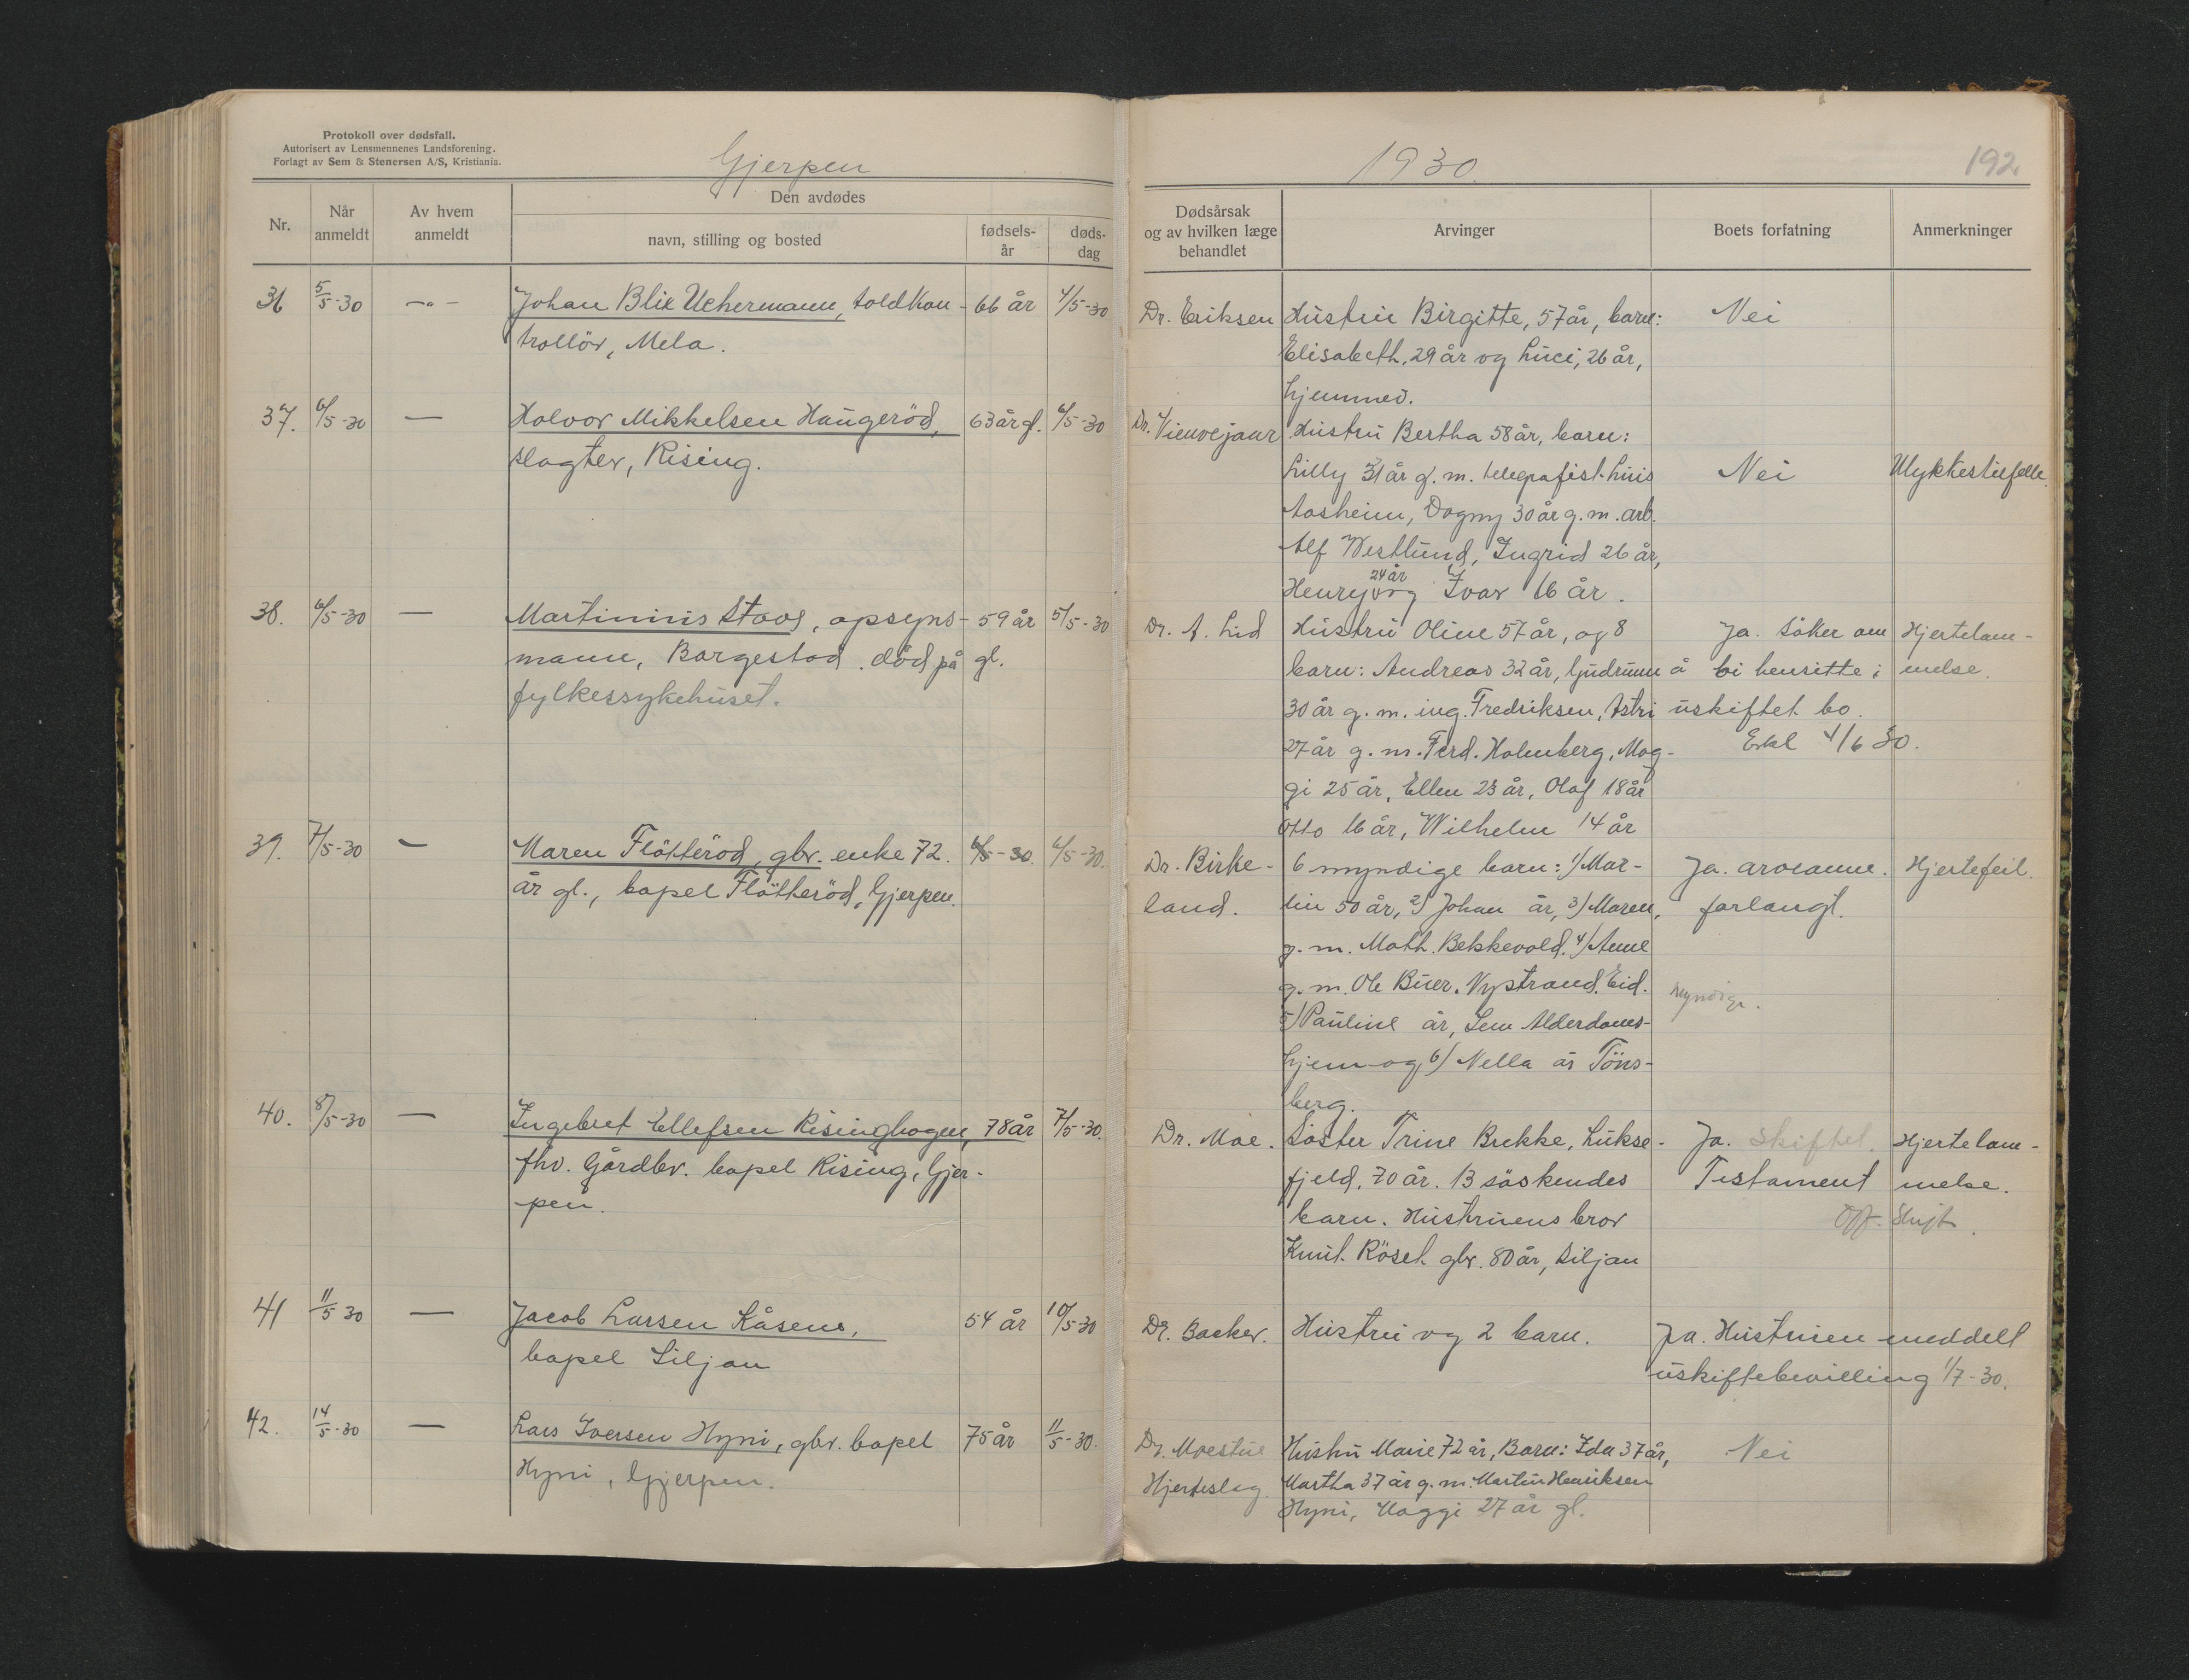 Protokoll over dødsfall.
Autorisert av Lensmennenes Landsforening.
Forlagt av Sem & Stenersen A/S, Kristiania.
Gjerpen
Nr.
Når anmeldt
Av hvem anmeldt
Den avdødes
navn, stilling og bosted
fødsels-år
døds-dag
36 5/5-30 -"- Johan Blix Uchermann, toldkon- 66 år 4/5-30
trollör, Mela.
37. 6/5-30 — Halvor Mikkelsen Haugeröd, 63 år gl. 6/5-30
slagter, Rising.
38. 6/5-30 — Martinius Staos, opsyns- 59 år 5/5-30
mann, Borgestad. död på gl.
fylkessykehuset.
39. 7/5-30 — Maren Flötteröd, gbr. enke 72. 6/5-30. 6/5-30.
år gl., bopel Flötteröd, Gjerpen.
40. 8/5-30 — Ingebret Ellefsen Risinghogen, 78 år 7/5-30.
fhv. Gårdbr. bopel Rising, Gjer-
pen.
41 11/5 30 — Jacob Larsen Kåsene, 54 år 10/5-30
bopel Siljan
42. 14/5-30 — Lars Iversen Hyni, gbr. bopel 75 år 11/5-30.
Hyni, Gjerpen.
1930.
192.
Dødsårsak
og av hvilken læge
behandlet
Arvinger
Boets forfatning
Anmerkninger
Dr. Eriksen Hustru Birgitte, 57 år, barn: Nei
Elisabeth, 29 år og Luci, 26 år,
hjemmev.
Dr. Hustru Bertha 58 år, barn:
Lilly 31 år g. m. telegrafist Luis Nei Ulykkestilfelle.
Aasheim, Dagny 30 år g. m. arb.
Alf Westlund, Ingrid 26 år,
24 år
Henry og Ivar 16 år.
Dr. A. Lid Hustru Oline 57 år, og 8 Ja. Söker om Hjertelam-
barn: Andreas 32 år, Gudrunn å bi hensitte i melse.
30 år g. m. ing. Fredriksen, Astri uskiftet bo.
27 år g. m. Ferd. Holmberg, Mag- Erkl 4/6 30.
gi 25 år, Ellen 23 år, Olaf 18 år
Otto 16 år, Wilhelm 14 år
Dr. Birke- 6 myndige barn: 1) Mar- Ja. arveanm. Hjertefeil.
land. tin 50 år, 2) Johan år, 3) Maren, forlangt.
g. m. Math. Bekkevold. 4) Anne
g. m. Ole Buer. Nystrand. Eid. myndige.
5) Pauline år, Sem Alderdoms-
hjem og 6) Nella år Töns-
berg.
Dr. Moe. Söster Trine Brekke, Lukse- Ja. Skiftet. Hjertelam-
fjeld, 70 år. 13 söskendes Testament melse.
barn. Hustruens bror Off. Skift.
Knut Röset gbr. 80 år, Siljan
Dr. Backer. Hustru og 2 barn. Ja. Hustruen meddelt
uskiftebevilling 1/7-30.
Dr. Moestue Hustru Marie 72 år, Barn: Ida 37 år, Nei
Hjerteslag Martha 37 år g. m. Martin Henriksen
Hyni, Maggi 27 år gl.